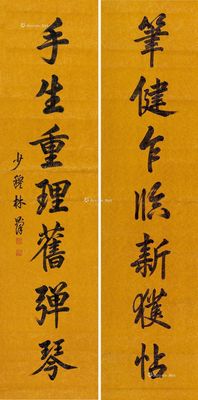 筆健乍臨新獲帖
手生重理舊彈琴
少穆林則徐